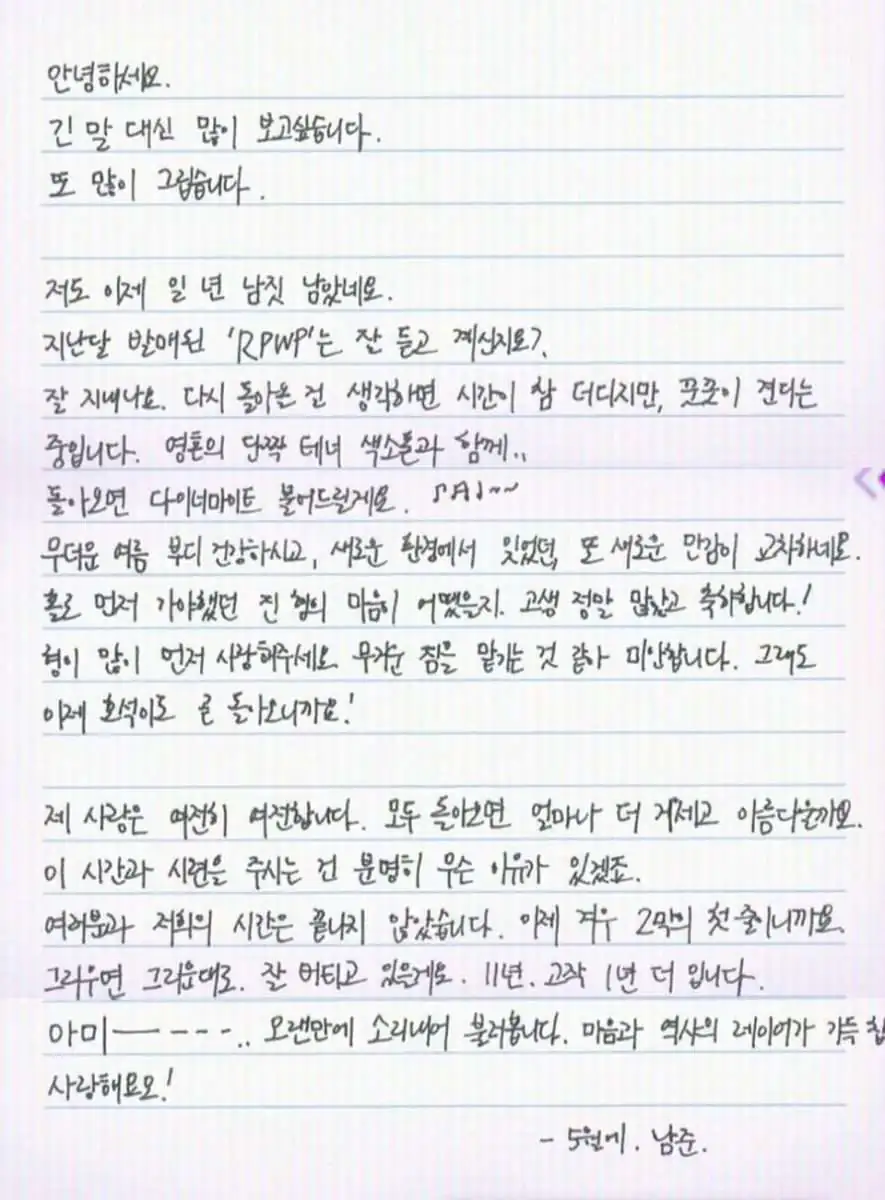 안녕하세요.
긴 말 대신 많이 보고싶습니다.
또 많이 그립습니다.
저도 이제 일 년 남짓 남았네요.
지난달 발매된 'RPWP'는 잘 듣고 계신지요?
잘 지내나요. 다시 돌아온 건 생각하면 시간이 참 더디지만, 꿋꿋이 견디는
중입니다. 영혼의 단짝 테너 색소폰과 함께..
돌아오면 다이너마이트 불어드릴게요.
무더운 여름 부디 건강하시고, 새로운 환경에서 잊었던, 또 새로운 만감이 교차하네요.
홀로 먼저 가야했던 진 형의 마음이 어땠을지. 고생 정말 많았고 축하합니다!
형이 많이 먼저 사랑해주세요. 무거운 짐을 맡기는 것 같아 미안합니다. 그래도
이제 호석이도 곧 돌아오니까요!
제 사랑은 여전히 여전합니다. 모두 돌아오면 얼마나 더 거세고 아름다울까요.
이 시간과 시련을 주시는 건 분명히 무슨 이유가 있겠죠.
여러분과 저희의 시간은 끝나지 않았습니다. 이제 겨우 2막의 첫 줄이니까요.
그리우면 그리운대로. 잘 버티고 있을게요. 11년. 고작 1년 더 입니다.
아미—— - - - .. 오랜만에 소리내어 불러봅니다. 마음과 역사의 레이어가 가득
사랑해요오!
- 5월에. 남준.